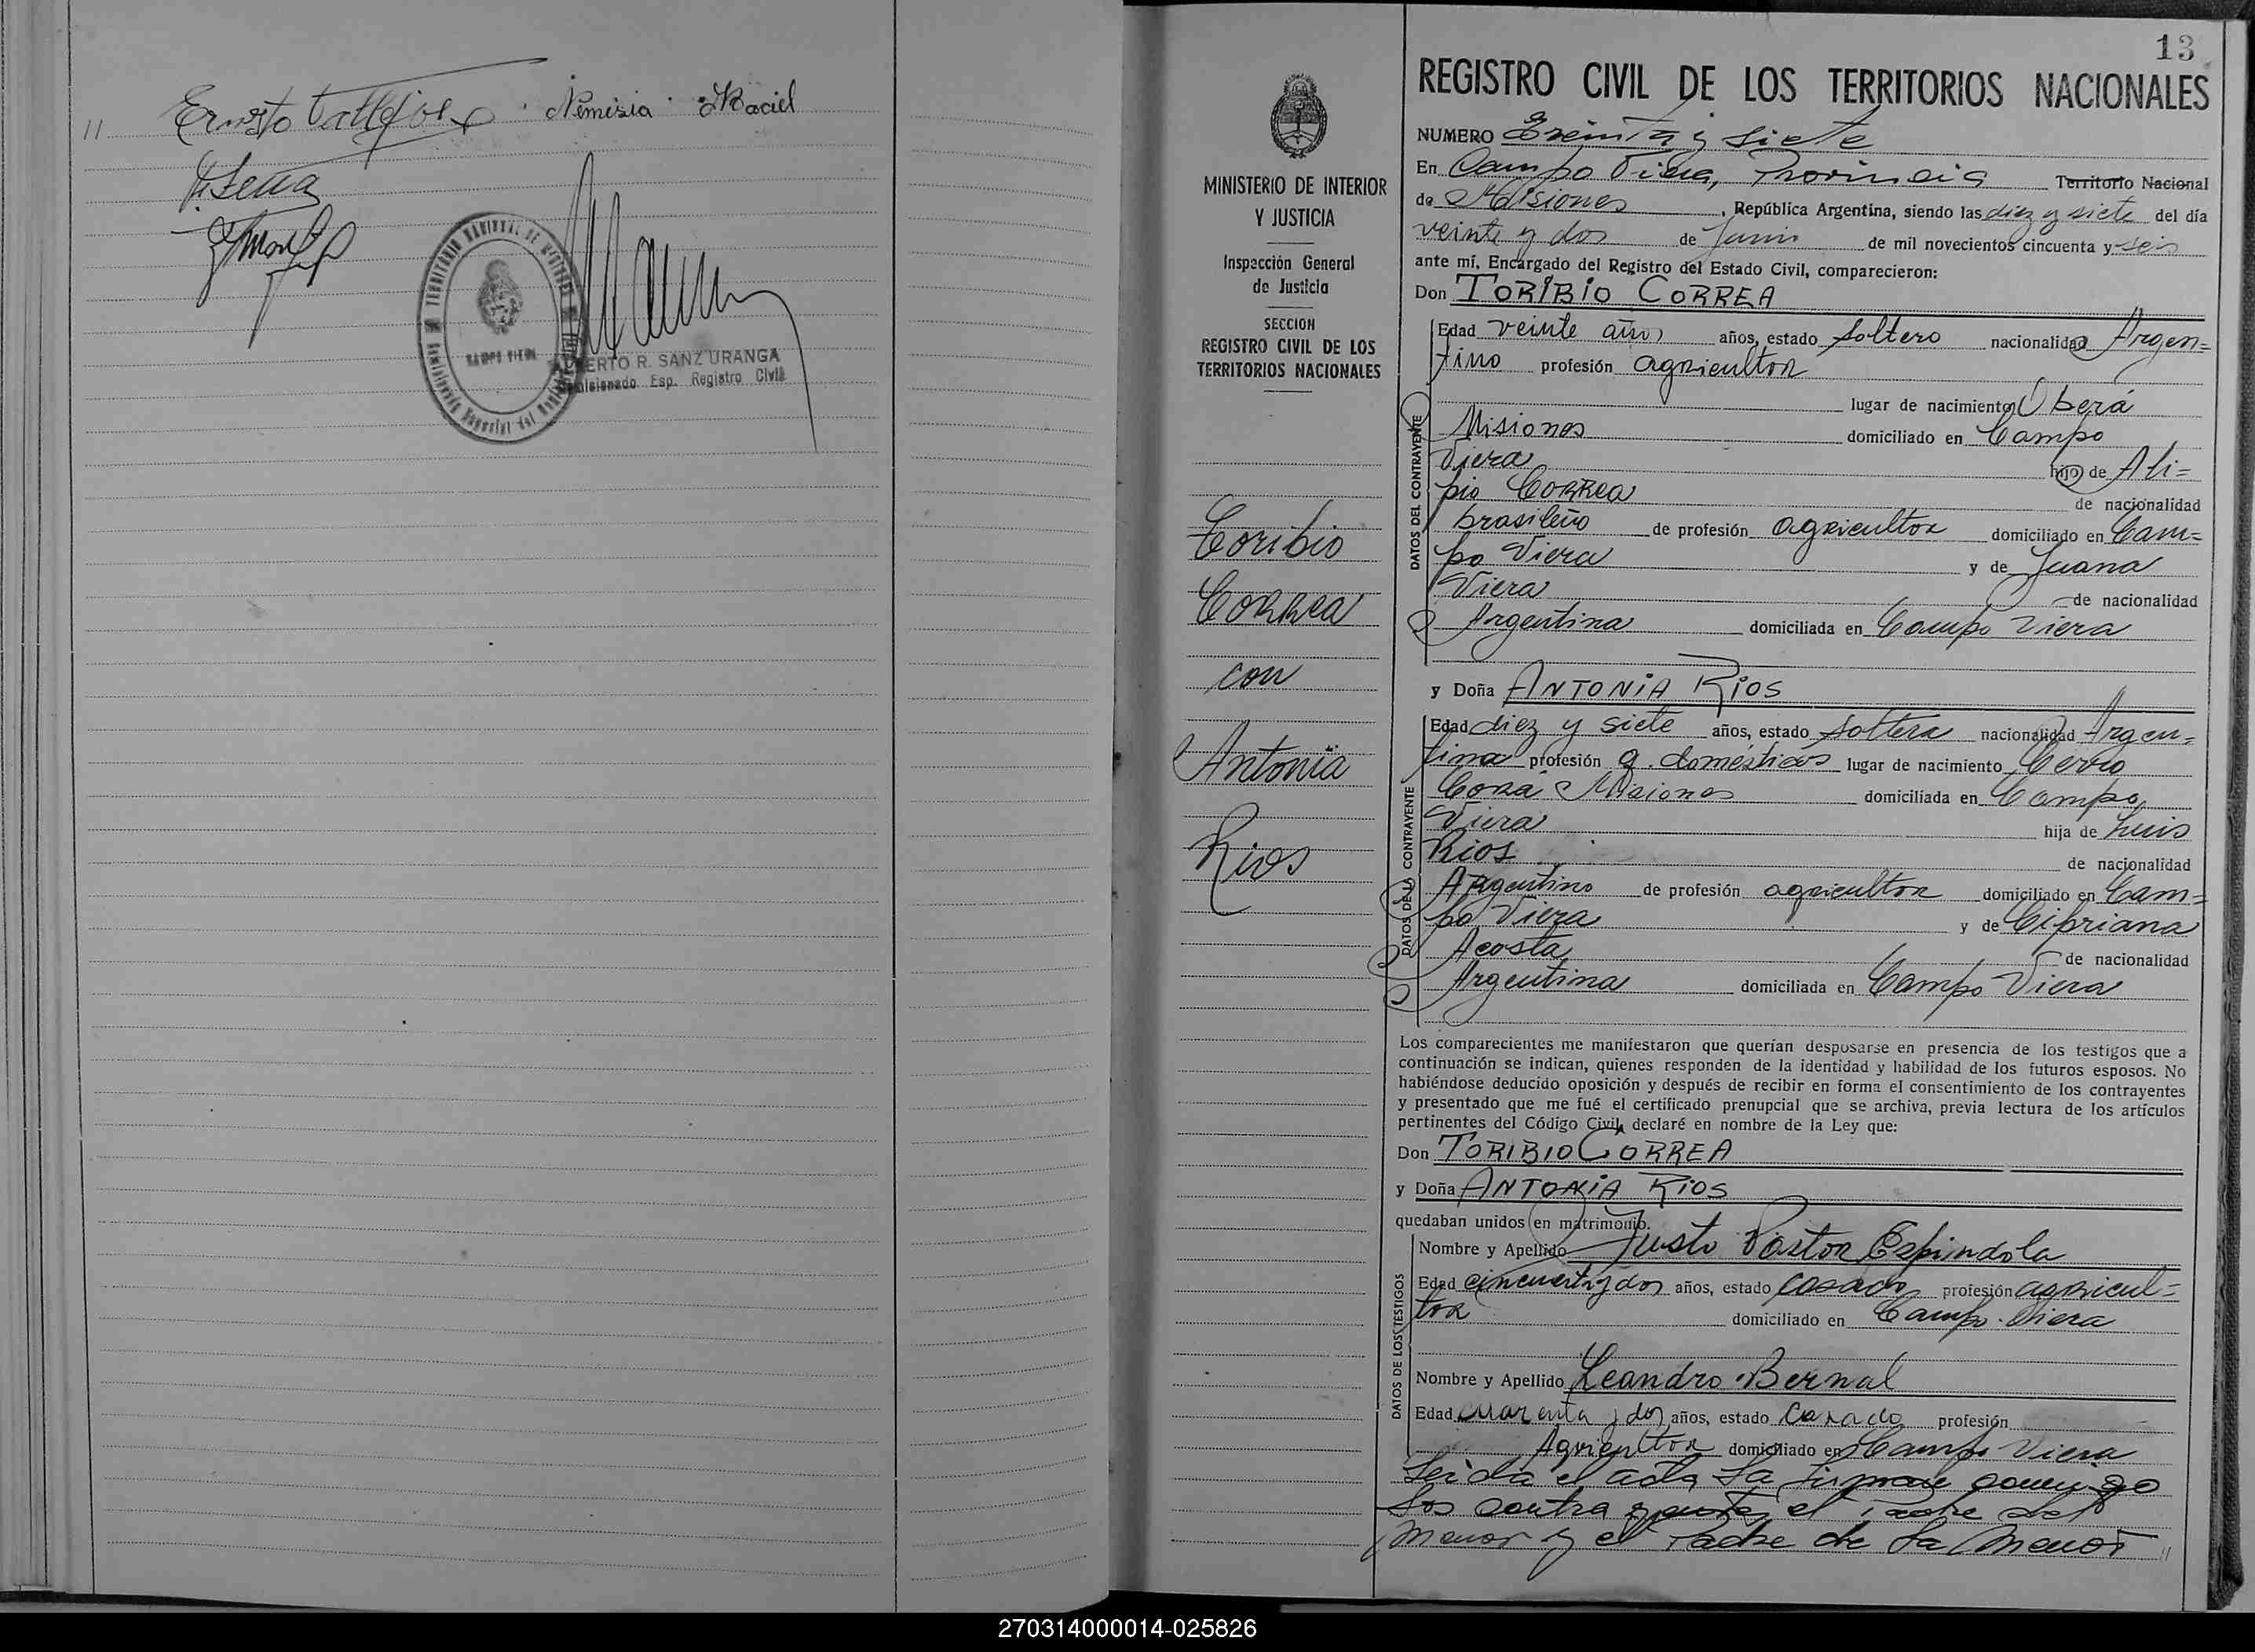 " Ernesto Vallejos Nemesia Maciel
TERRITORIO NACIONAL DE MISIONES
CAMPO VIERA
ERTO R. SANZ URANGA
Comisionado Esp. Registro Civil
13
REGISTRO CIVIL DE LOS TERRITORIOS NACIONALES
MINISTERIO DE INTERIOR
Y JUSTICIA
Inspección General
de Justicia
SECCION
REGISTRO CIVIL DE LOS
TERRITORIOS NACIONALES
Toribio
Correa
con
Antonia
Rios
NUMERO Treinta y siete
En Campo Viera, Provincia Territorio Nacional
de Misiones, República Argentina, siendo las diez y siete del día
veinte y dos de Junio de mil novecientos cincuenta y seis
ante mí, Encargado del Registro del Estado Civil, comparecieron:
Don TORIBIO CORREA
DATOS DEL CONTRAYENTE
Edad veinte años años, estado soltero nacionalidad Argen=
tino profesión agricultor
lugar de nacimiento Oberá
Misiones domiciliado en Campo
Viera hijo de Ali=
pio Correa de nacionalidad
brasileño de profesión agricultor domiciliado en Cam=
po Viera y de Juana
Viera de nacionalidad
Argentina domiciliada en Campo Viera
y Doña ANTONIA RIOS
DATOS DE LA CONTRAYENTE
Edad diez y siete años, estado soltera nacionalidad Argen=
tina profesión q. domésticos lugar de nacimiento Cerro
Corá Misiones domiciliada en Campo
Viera hija de Luis
Rios de nacionalidad
Argentino de profesión agricultor domiciliado en Cam=
po Viera y de Cipriana
Acosta de nacionalidad
Argentina domiciliada en Campo Viera
Los comparecientes me manifestaron que querían desposarse en presencia de los testigos que a
continuación se indican, quienes responden de la identidad y habilidad de los futuros esposos. No
habiéndose deducido oposición y después de recibir en forma el consentimiento de los contrayentes
y presentado que me fué el certificado prenupcial que se archiva, previa lectura de los artículos
pertinentes del Código Civil, declaré en nombre de la Ley que:
Don TORIBIO CORREA
y Doña ANTONIA RIOS
quedaban unidos en matrimonio.
DATOS DE LOS TESTIGOS
Nombre y Apellido Justo Pastor Espindola
Edad cincuenta y dos años, estado casado profesión agricul=
tor domiciliado en Campo Viera
Nombre y Apellido Leandro Bernal
Edad cuarenta y dos años, estado casado profesión
Agricultor domiciliado en Campo Viera
Leida el acta la firman conmigo
los contrayentes el Padre del
menor y el Padre de la menor "
270314000014-025826